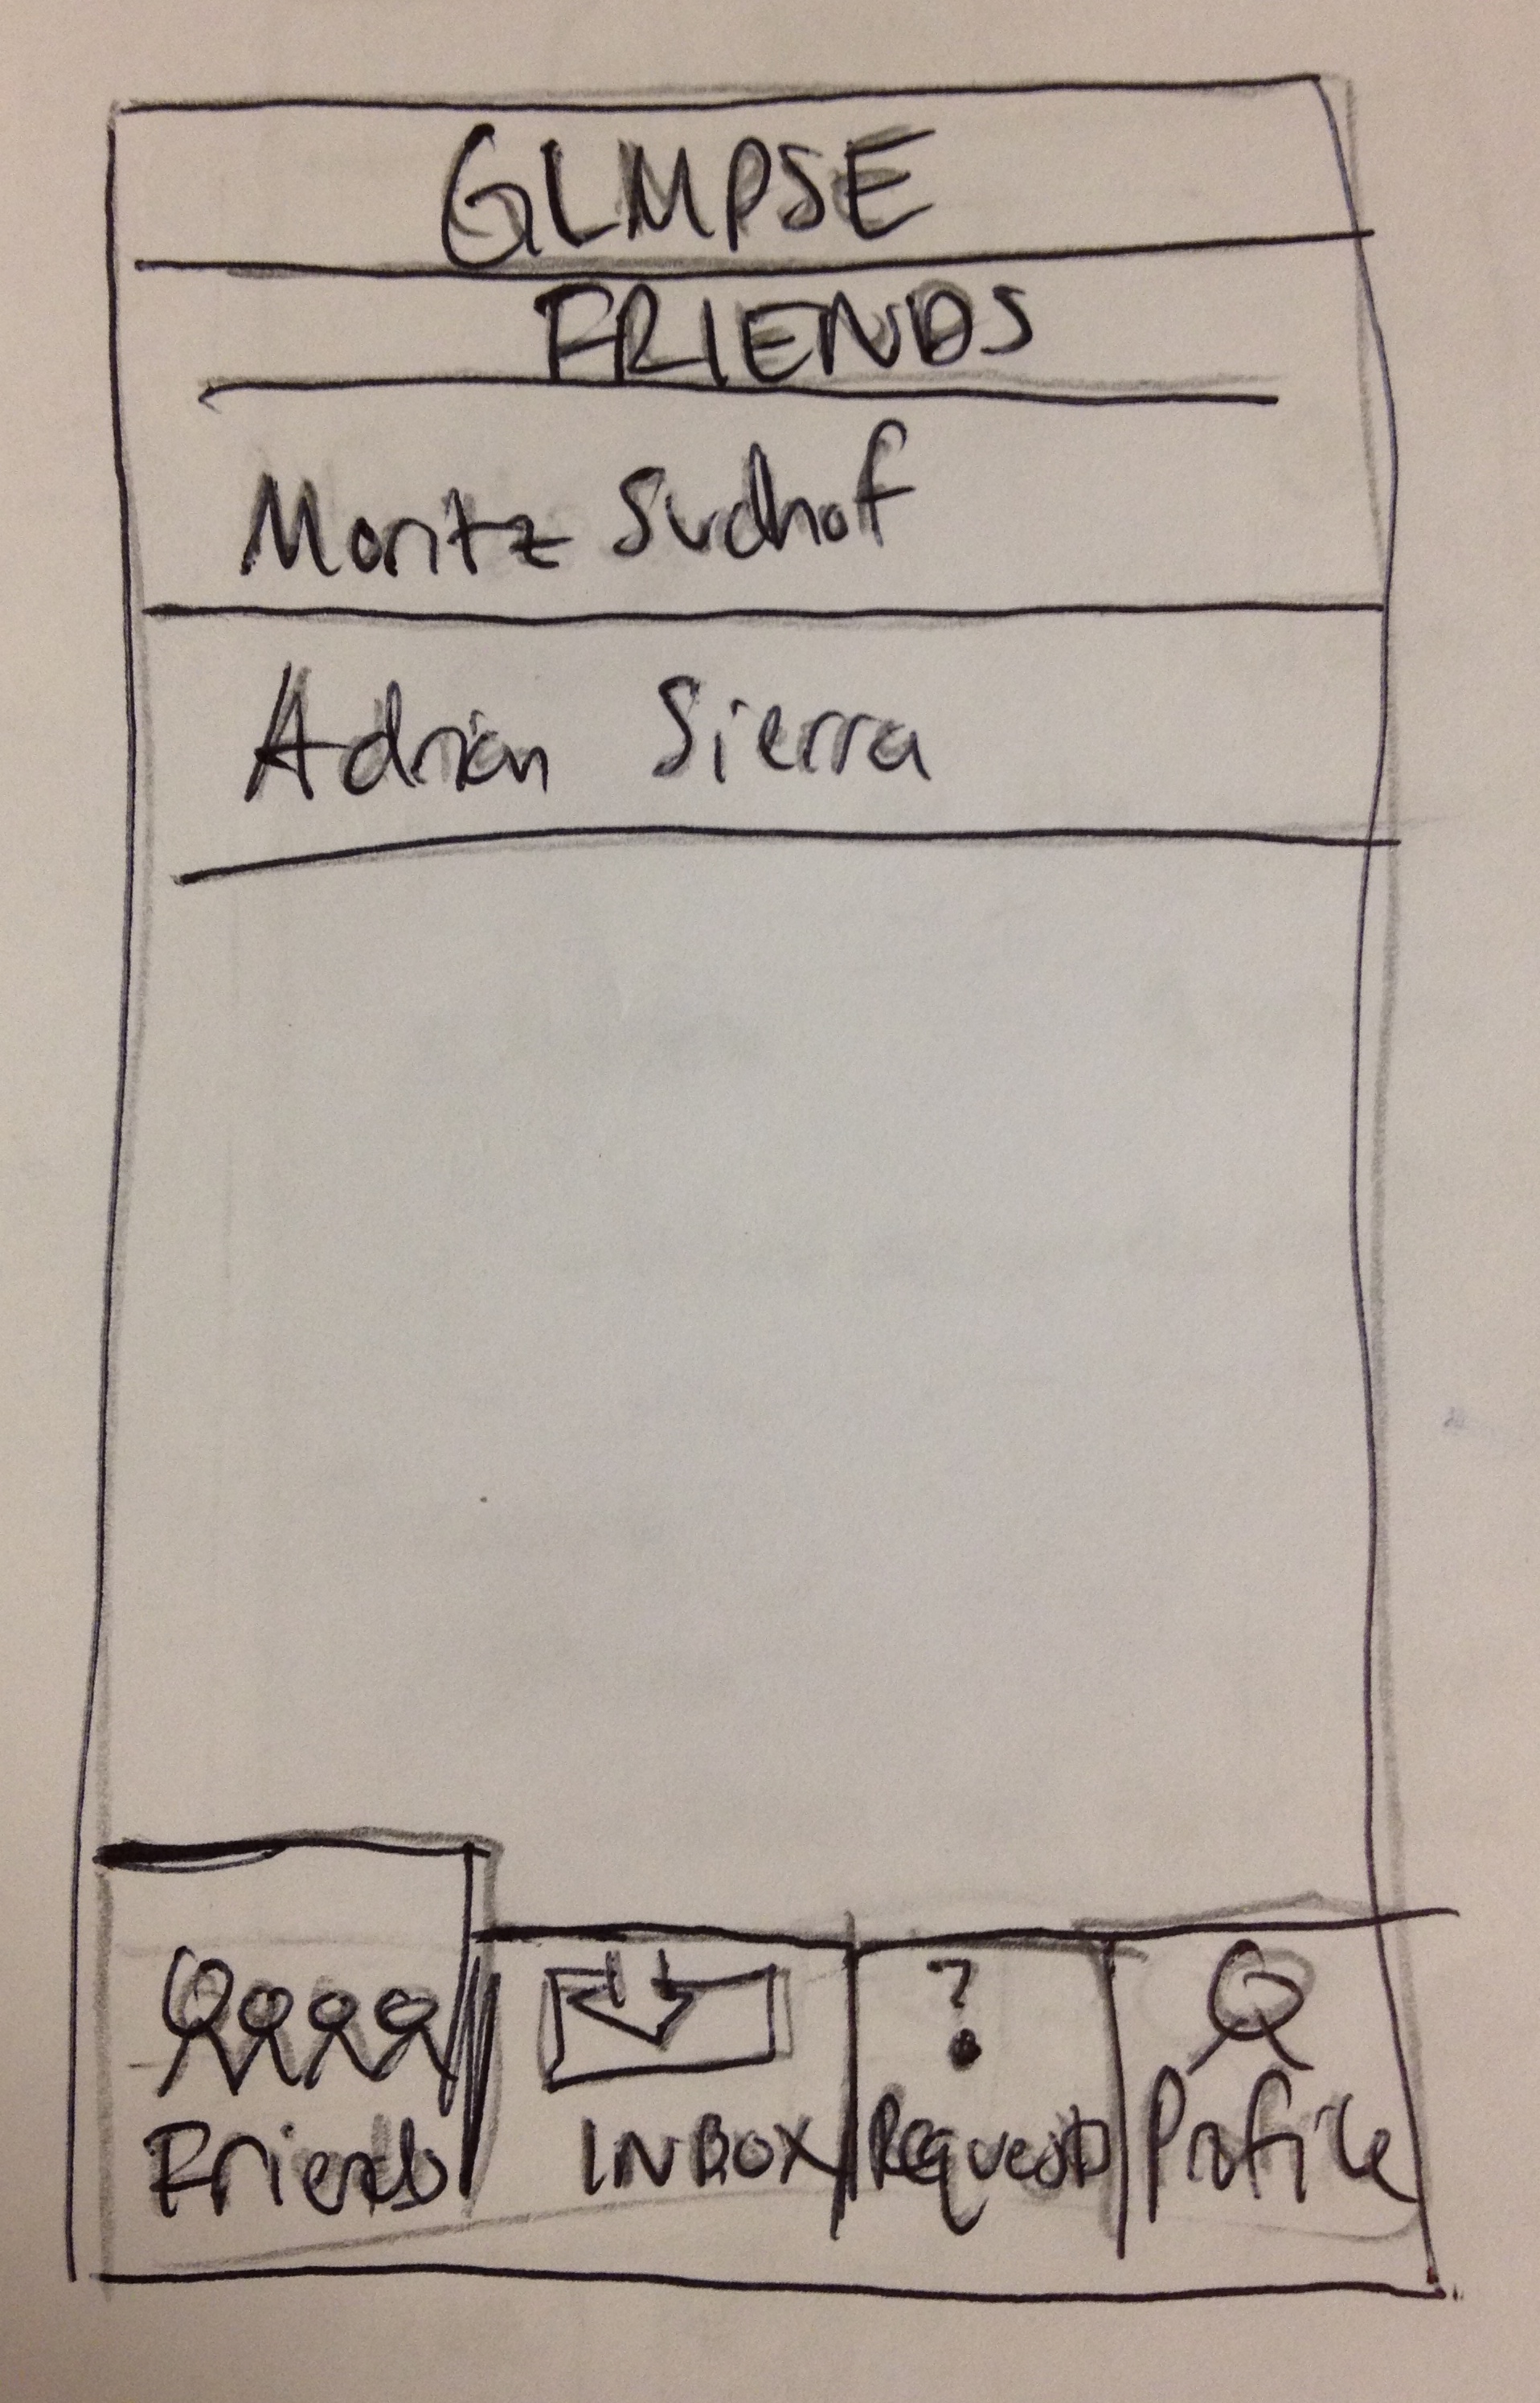 GLMPSE
FRIENDS
Moritz Sudhof
Adrian Sierra
?
Friends INBOX Requests Profile